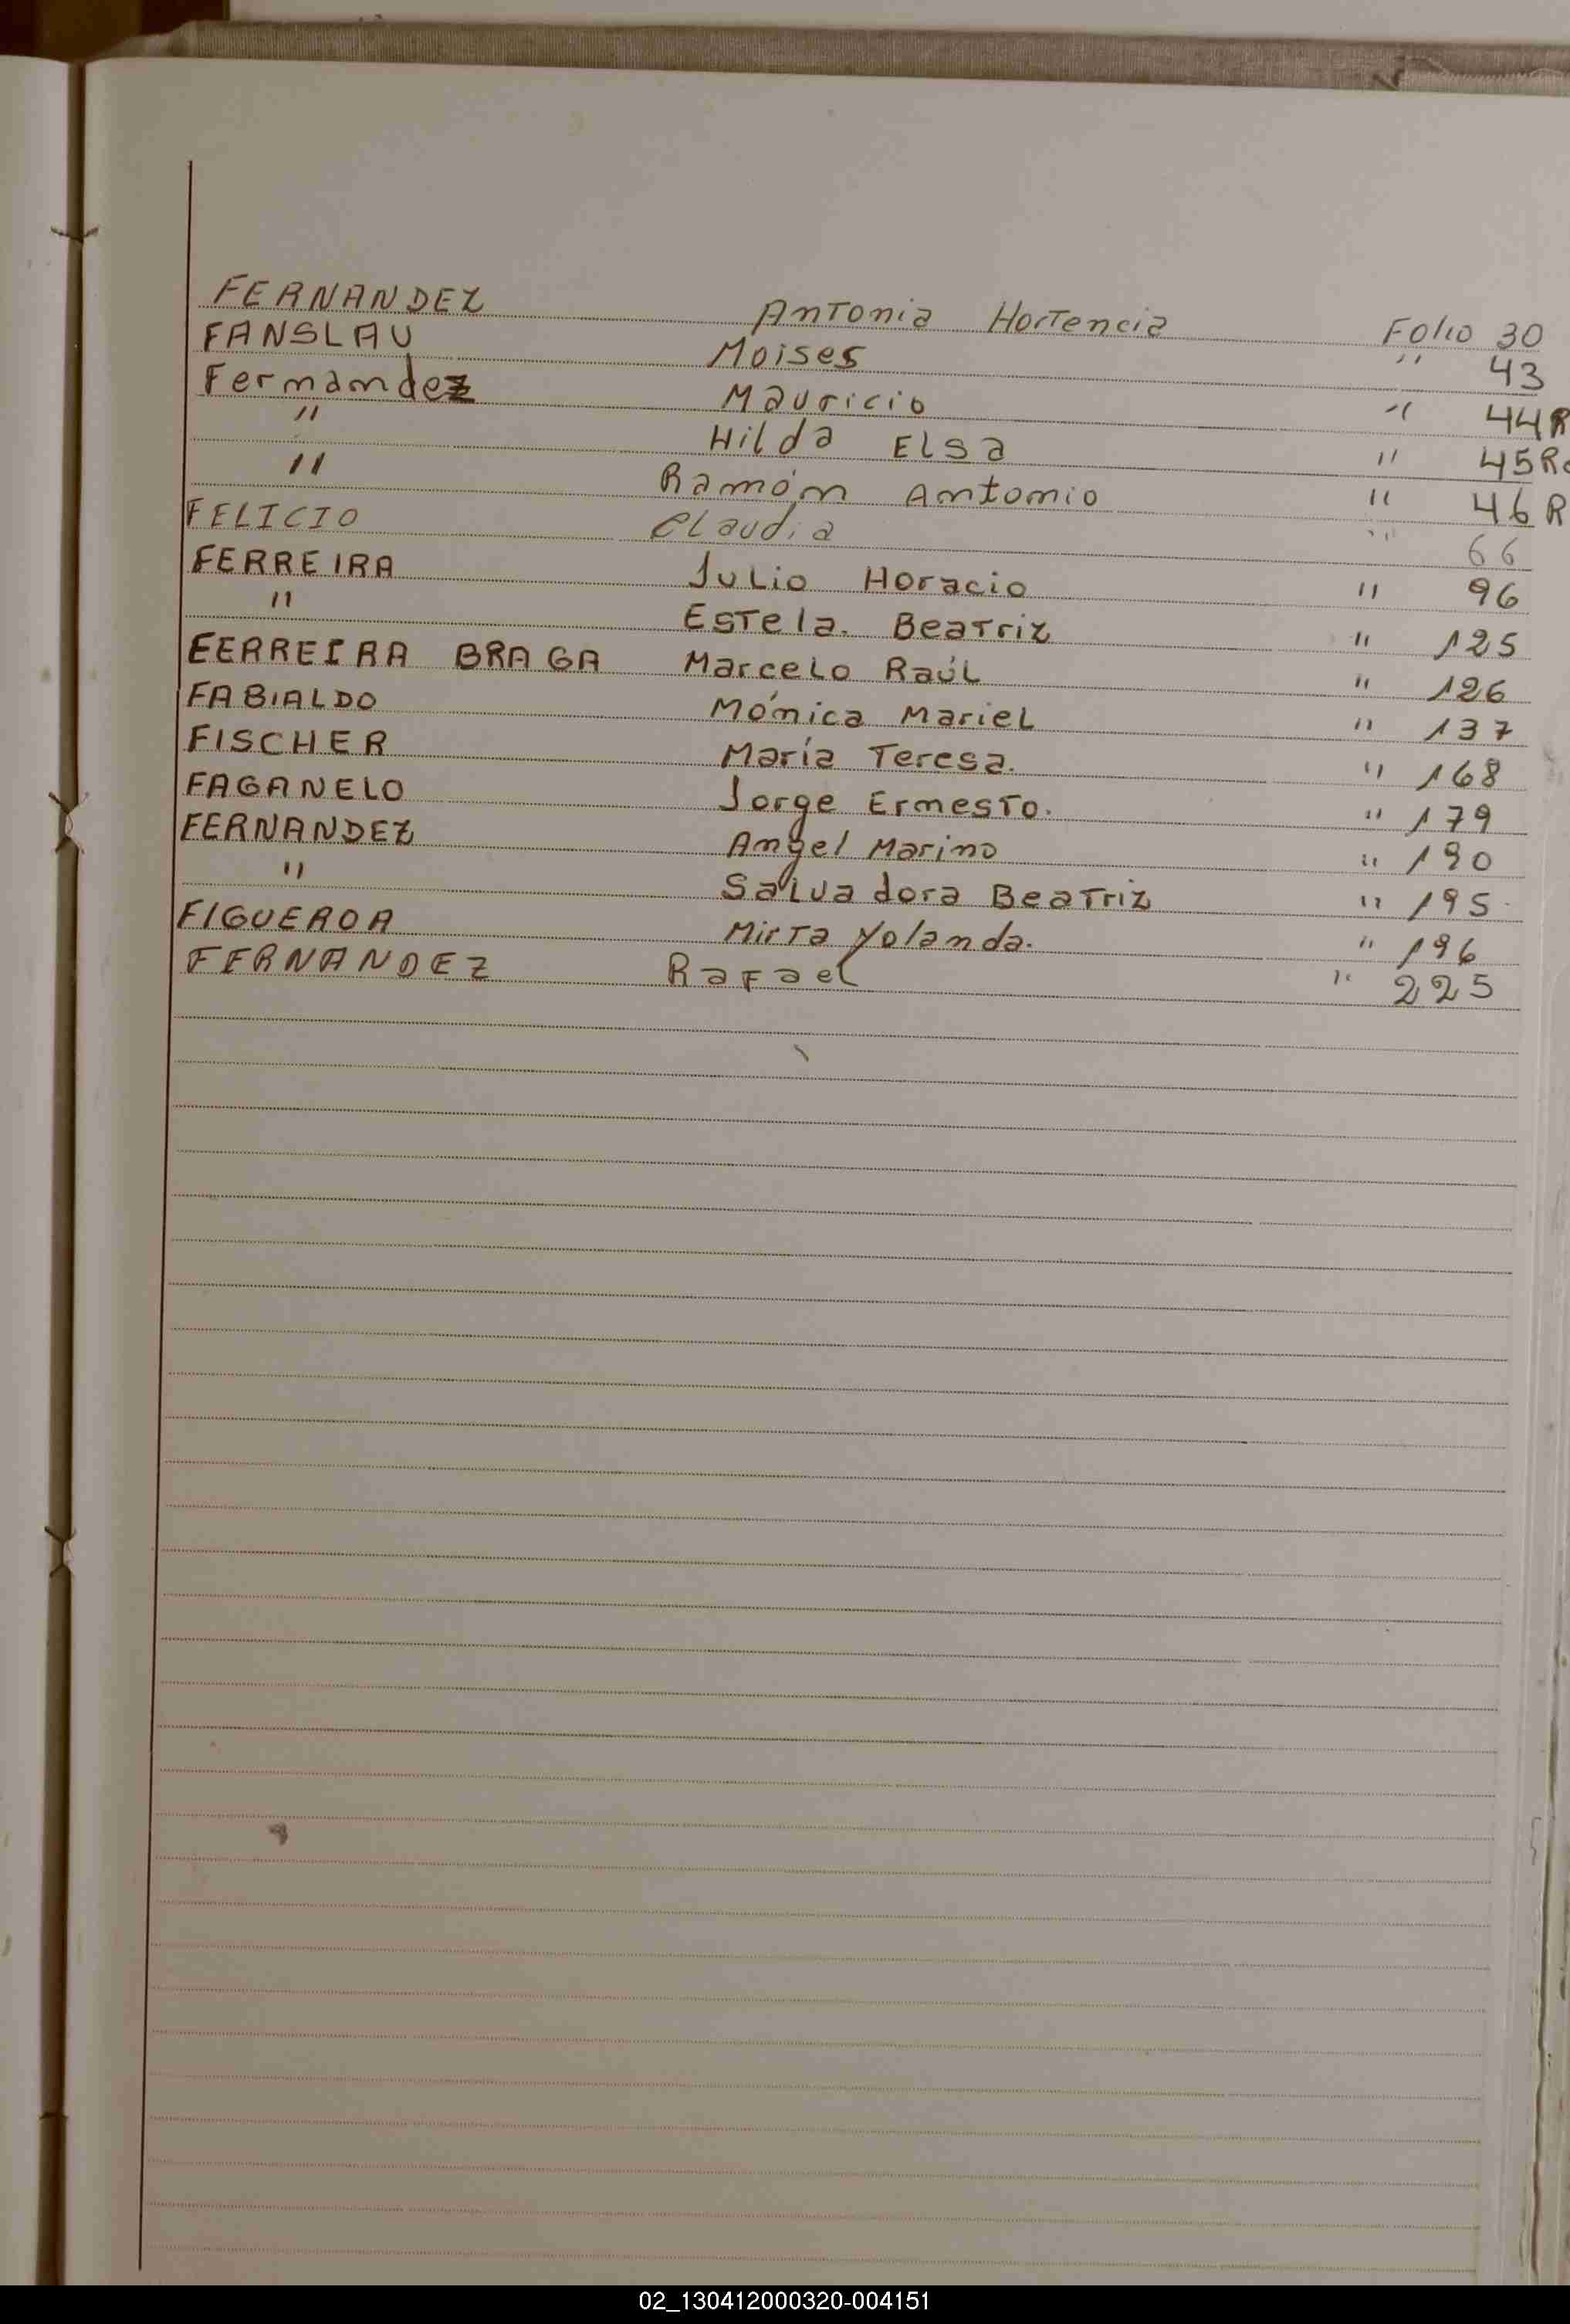 FERNANDEZ Antonia Hortencia Folio 30
FANSLAU Moises " 43
Fernandez Mauricio " 44R
" Hilda Elsa " 45R
" Ramón Antonio " 46R
FELICIO Claudia " 66
FERREIRA Julio Horacio " 96
" Estela. Beatriz " 125
FERREIRA BRAGA Marcelo Raúl " 126
FABIALDO Mónica Mariel " 137
FISCHER María Teresa. " 168
FAGANELO Jorge Ernesto. " 179
FERNANDEZ Angel Marino " 190
" Salvadora Beatriz " 195
FIGUEROA Mirta Yolanda. " 196
FERNANDEZ Rafael " 225
02_130412000320-004151